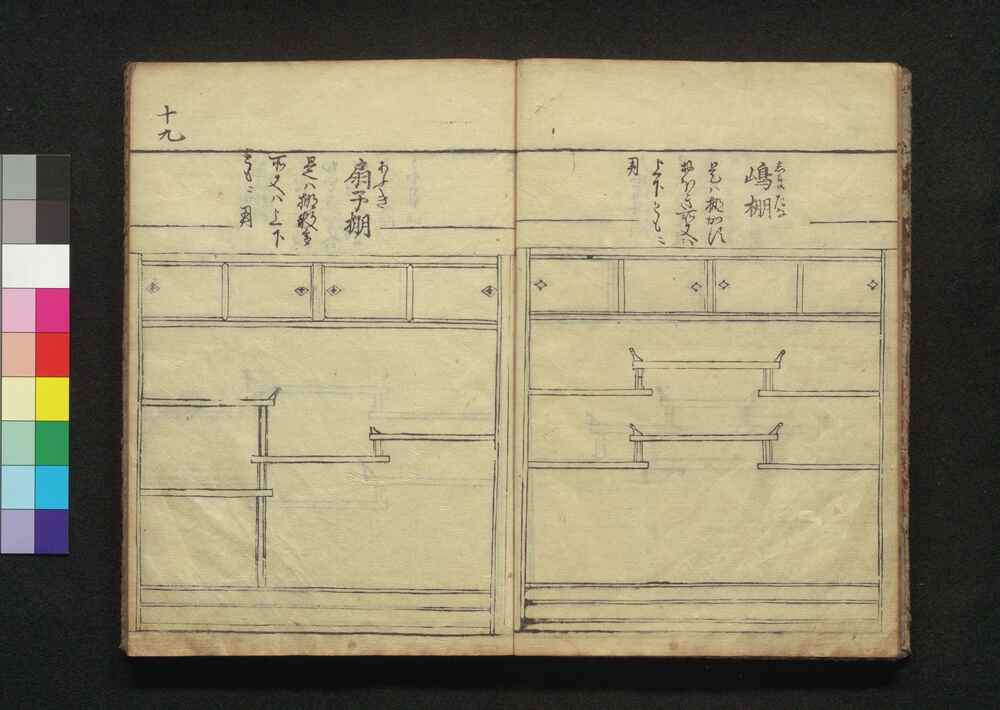 しまだな
嶋棚
是ハ棚かす
上下ともニ
用
あふき
扇子棚
是ハ棚数多
所又ハ上下
ともニ用
十九